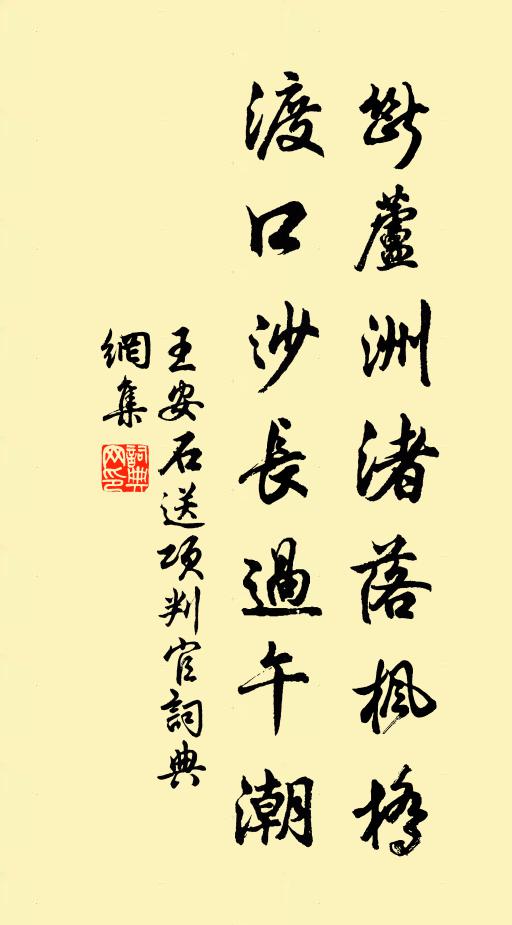 斷蘆洲渚落楓橋
渡口沙長過午潮
王安石送項判官詞典
網集
詞典
网印